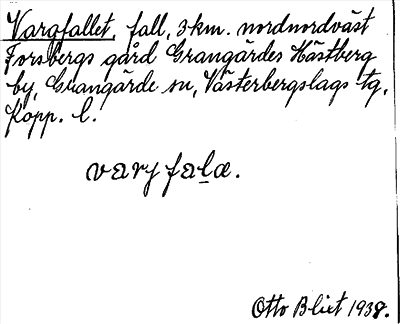 Vargfallet, fall, 3 km. nordnordväst
Forsbergs gård Grangärdes Hästberg
by, Grangärde sn, Västerbergslags tg,
Kopp. l.
varjfalæ.
Otto Blixt 1938.